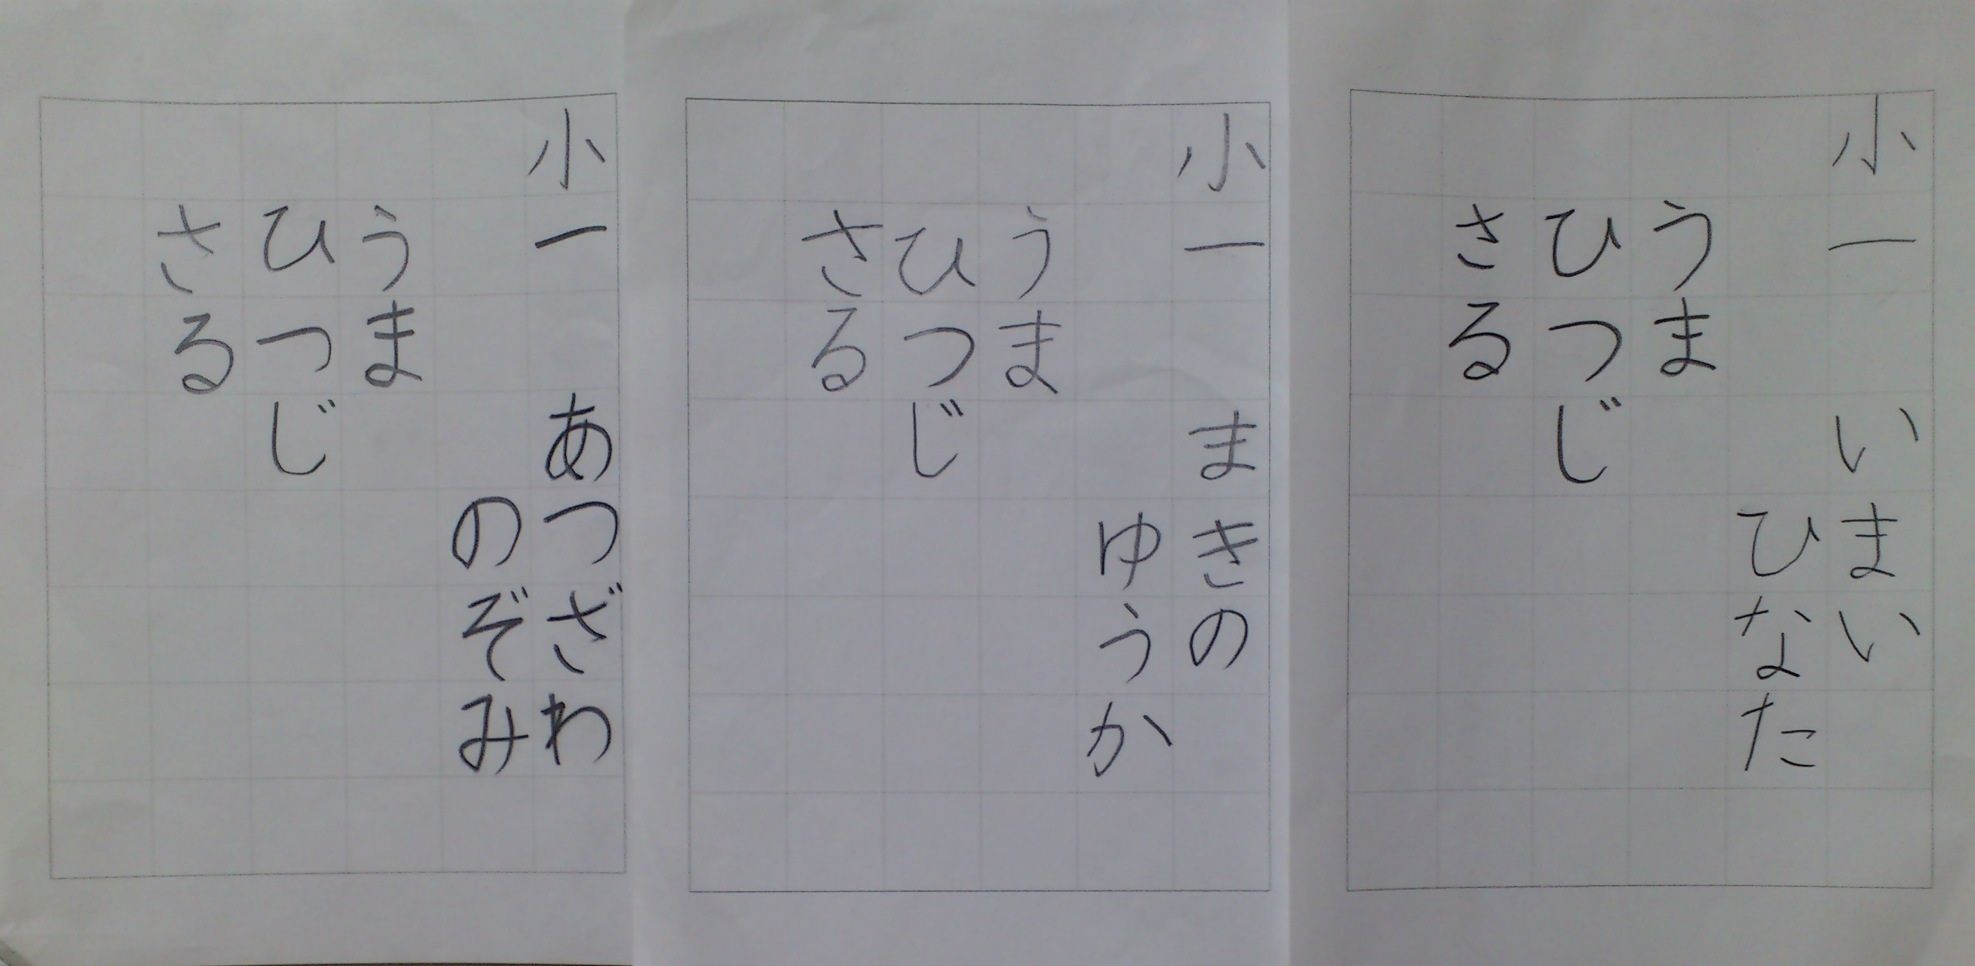 小一 あつざわ
のぞみ
うま
ひつじ
さる
小一 まきの
ゆうか
うま
ひつじ
さる
小一 いまい
ひなた
うま
ひつじ
さる